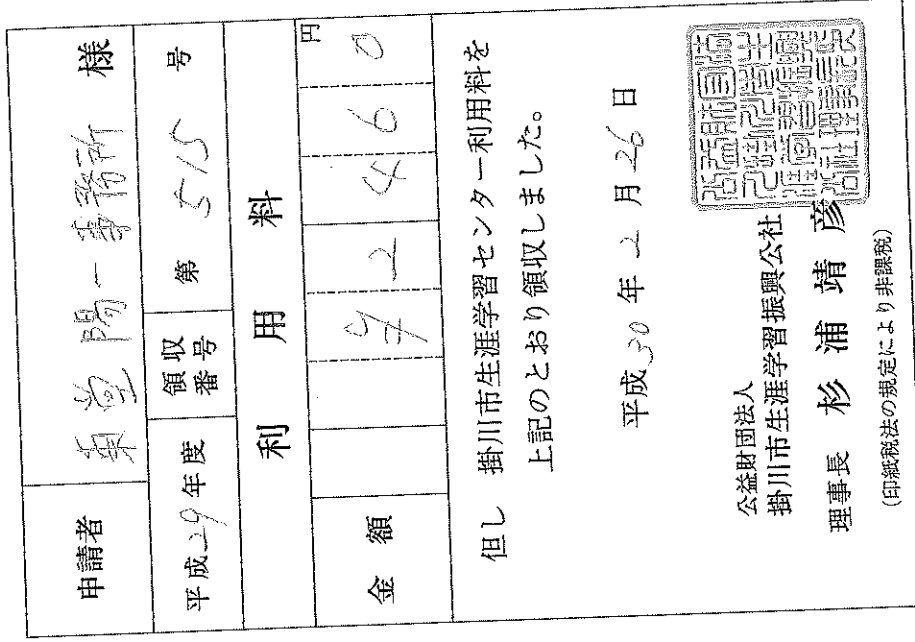 申請者 東堂陽一事務所 様
平成29年度 領収番号 第 515 号
利用料
金額 ¥2460円
但し 掛川市生涯学習センター利用料を
上記のとおり領収しました。
平成30年2月26日
公益財団法人
掛川市生涯学習振興公社
理事長 杉浦靖彦
(印紙税法の規定により非課税)